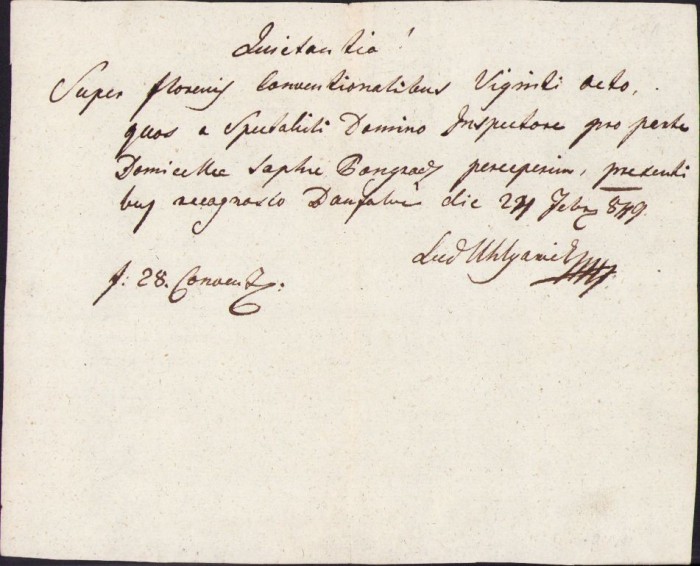 Quietantia!
Super florenis Conventionalibus Viginti octo,
quos a Spectabili Domino Inspectore pro parte
Domicellae Saphie Pongracz perceperim, presenti
bus recognosco die Febr
Lud Uhlyarick
f: 28. Convent.